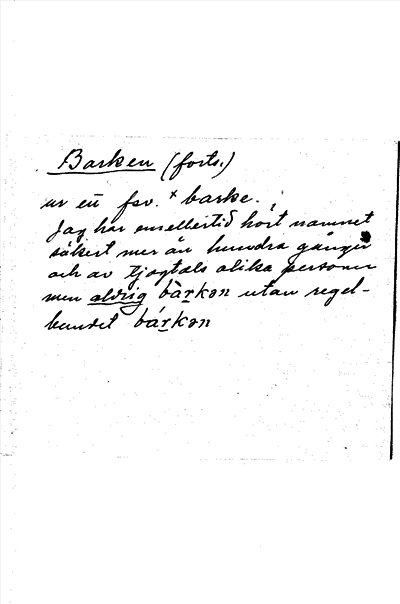 Barken (forts.)
ur en fsv. × barke.
Jag har emellertid hört namnet
säkert mer än hundra gånger
och av tjogtals olika personer
men aldrig bàr̲kən utan regel-
bundet bár̲kən